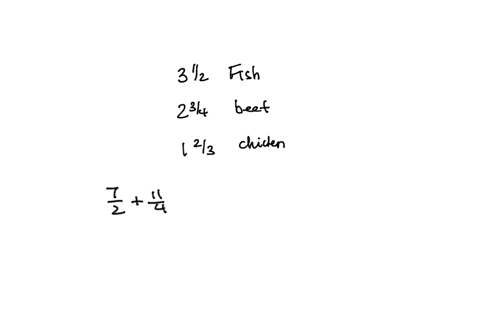 3 1/2 Fish
2 3/4 beef
1 2/3 chicken
7/2 + 11/4